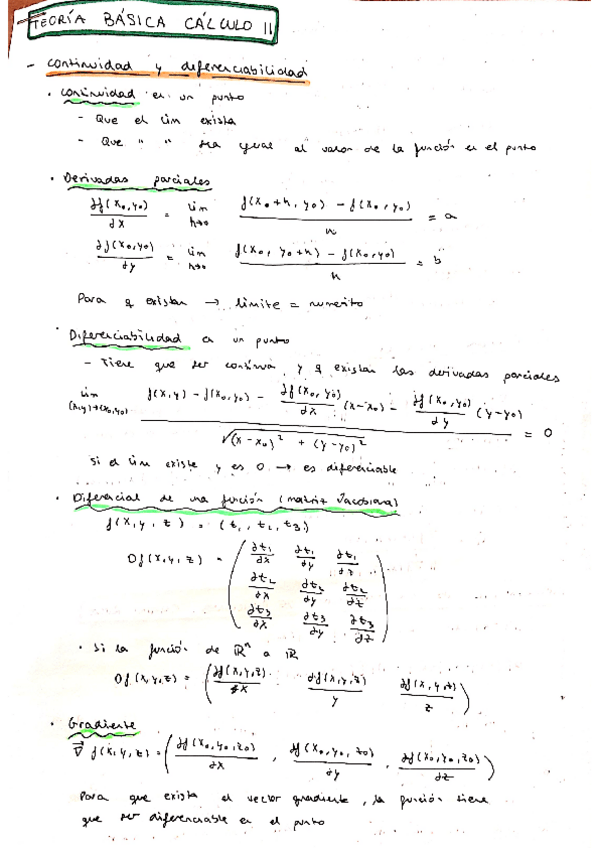 TEORÍA BÁSICA CÁLCULO II
- continuidad y diferenciabilidad
· Continuidad en un punto
- Que el lim exista
- Que " " sea igual al valor de la función en el punto
· Derivadas parciales
∂f(x₀,y₀)/∂x = lim h→0 f(x₀+h, y₀) - f(x₀, y₀)/h = a
∂f(x₀,y₀)/∂y = lim h→0 f(x₀, y₀+h) - f(x₀,y₀)/h = b
Para q existan → límite = numerito
· Diferenciabilidad en un punto
- Tiene que ser continua y q existan las derivadas parciales
lim (x,y)→(x₀,y₀) f(x,y) - f(x₀,y₀) - ∂f(x₀,y₀)/∂x (x-x₀) - ∂f(x₀,y₀)/∂y (y-y₀) / √(x-x₀)² + (y-y₀)² = 0
Si el lim existe y es 0 → es diferenciable
· Diferencial de una función (matriz Jacobiana)
f(x,y,z) = (t₁, t₂, t₃)
Df(x,y,z) = (∂t₁/∂x ∂t₁/∂y ∂t₁/∂z
∂t₂/∂x ∂t₂/∂y ∂t₂/∂z
∂t₃/∂x ∂t₃/∂y ∂t₃/∂z)
· Si la función de ℝⁿ a ℝ
Df(x,y,z) = (∂f(x,y,z)/∂x ∂f(x,y,z)/y ∂f(x,y,z)/z)
· Gradiente
∇⃗ f(x,y,z) = (∂f(x₀,y₀,z₀)/∂x , ∂f(x₀,y₀,z₀)/∂y , ∂f(x₀,y₀,z₀)/∂z)
Para que exista el vector gradiente, la función tiene
que ser diferenciable en el punto